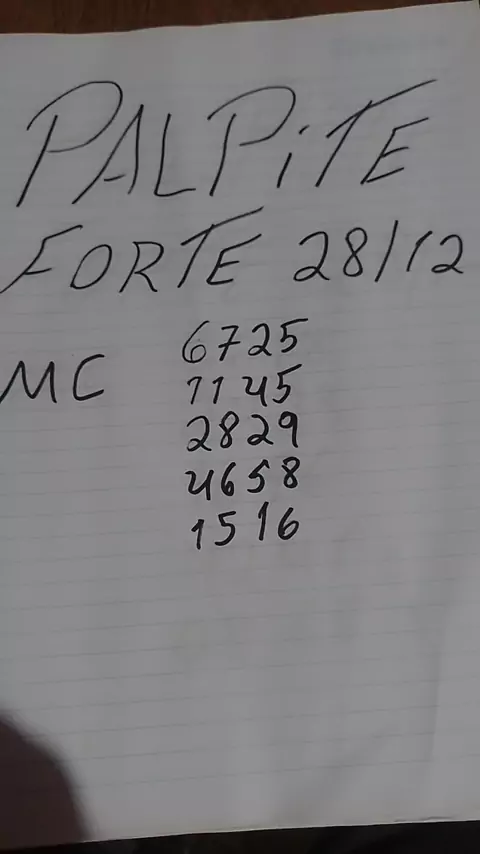 PALPiTE
FORTE 28/12
MC
6725
1145
2829
4658
1516